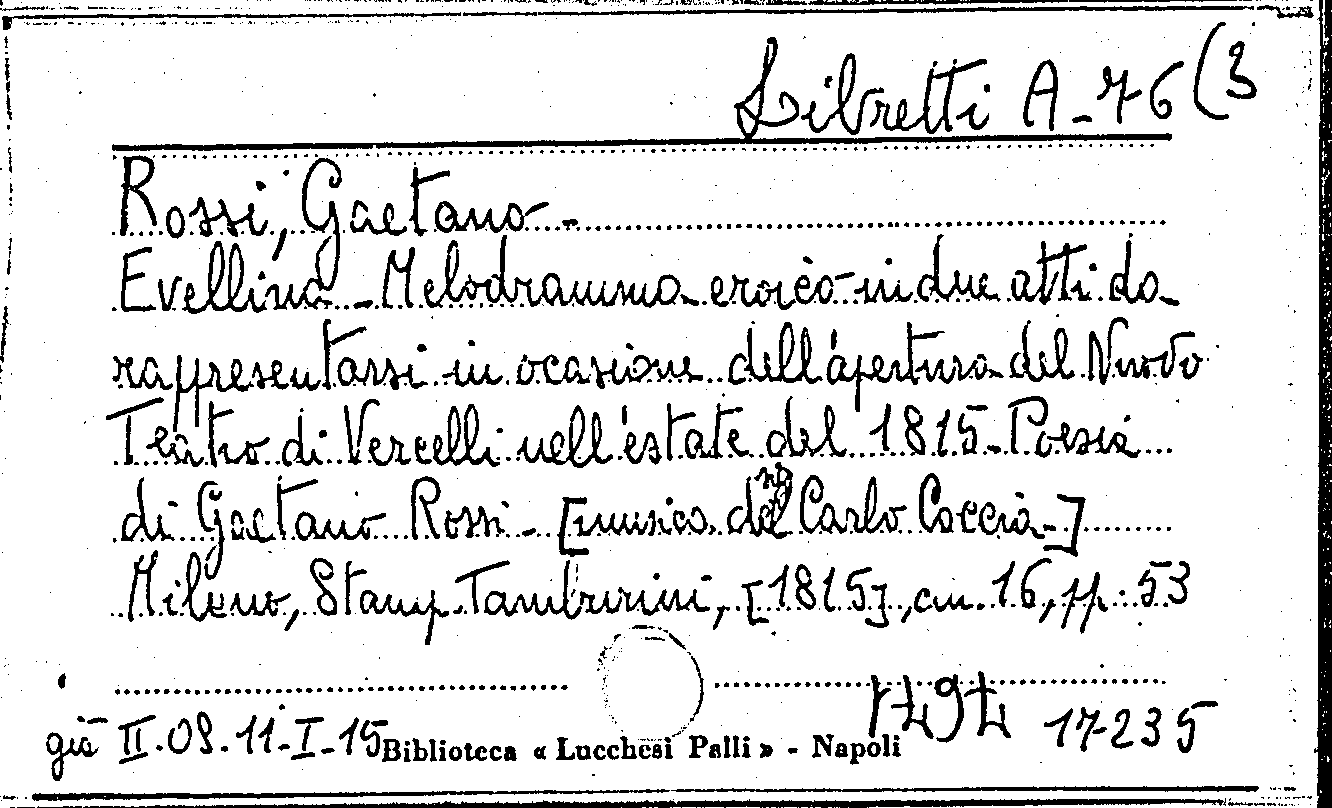 Libretti A-76(3
Rossi, Gaetano -
Evellina - Melodramma eroico in due atti da
rappresentarsi in ocasione dell'apertura del Nuovo
Teatro di Vercelli nell'estate del 1815 - Poesia
di Gaetano Rossi - [musica di Carlo Coccia -]
Milano, Stamp. Tamburini, [1815], cm. 16, pp. 53
già II.08.11-I-15 Biblioteca « Lucchesi Palli » - Napoli 17-235